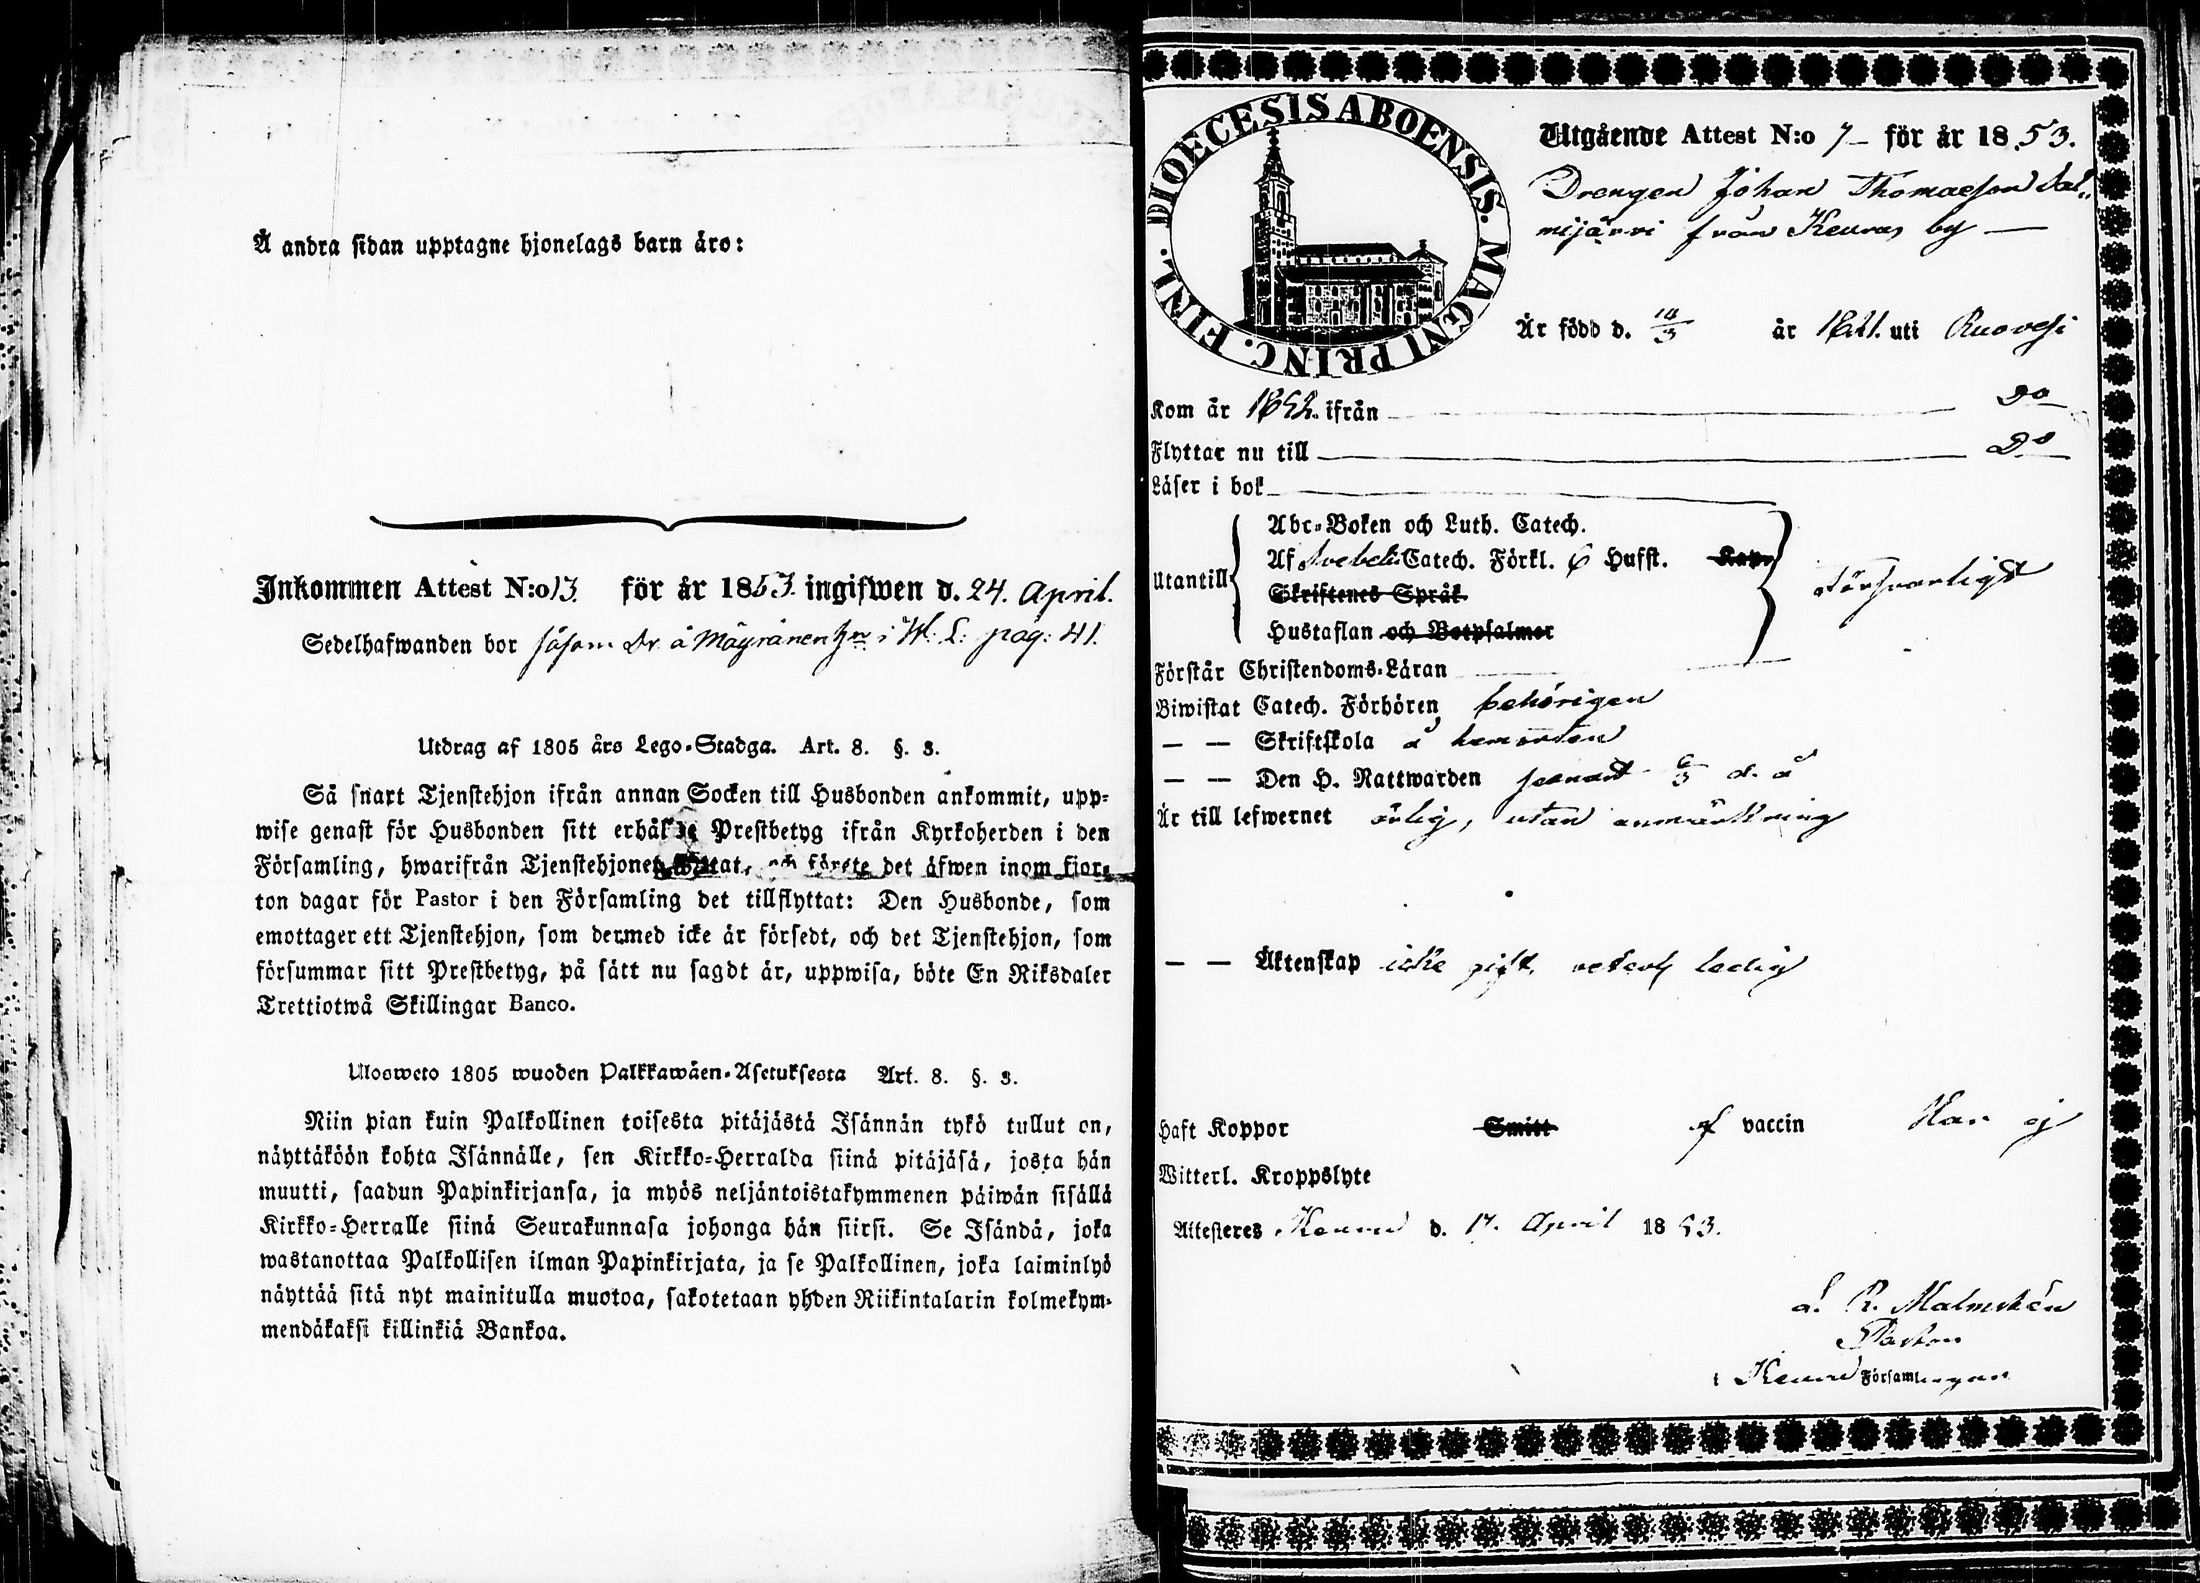 Å andra sidan upptagne hjonelags barn äro:
Inkommen Attest N:o 13. för år 1853. ingifwen d. 24. April.
Sedelhafwanden bor såsom Dr. å Mäyränen i W: L: pag: 41.
Utdrag af 1805 års Lego-Stadga. Art. 8. §. 3.
Så snart Tjenstehjon ifrån annan Socken till Husbonden ankommit, upp-
wise genast för Husbonden sitt erhållne Prestbetyg ifrån Kyrkoherden i den
Församling, hwarifrån Tjenstehjonet flyttat, och förete det äfwen inom fjor-
ton dagar för Pastor i den Församling det tillflyttat: Den Husbonde, som
emottager ett Tjenstehjon, som dermed icke är försedt, och det Tjenstehjon, som
försummar sitt Prestbetyg, på sätt nu sagdt är, uppwisa, böte En Riksdaler
Trettiotwå Skillingar Banco.
Ulosweto 1805 wuoden Palkkawäen-Asetuksesta Art. 8. §. 3.
Niin pian kuin Palkollinen toisesta pitäjästä Isännän tykö tullut on,
näyttäköön kohta Isännälle, sen Kirkko-Herralda siinä pitäjäsä, josta hän
muutti, saadun Papinkirjansa, ja myös neljäntoistakymmenen päiwän sisällä
Kirkko-Herralle siinä Seurakunnasa johonga hän siirsi. Se Isändä, joka
wastanottaa Palkollisen ilman Papinkirjata, ja se Palkollinen, joka laiminlyö
näyttää sitä nyt mainitulla muotoa, sakotetaan yhden Riikintalarin kolmekym-
mendäkaksi killinkiä Bankoa.
DIOECESIS ABOENSIS. MAGNI PRINC. FINL.
Utgående Attest N:o 7 för år 1853.
Drengen Johan Thomasson Sal-
mijärvi från Keuru by
Är född d. 14/3 år 1821. uti Ruovesi
Kom år 1852. ifrån Do
Flyttar nu till Do
Läser i bok
Abc-Boken och Luth. Catech.
Utantill Af Svebeli Catech. Förkl. 6 Hufst. Kapp
Skriftenes Språk
Hustaflan och Botpsalmer
försvarligt
Förstår Christendoms-Läran
Biwistat Catech. Förhören behörigen
— — Skriftskola å hemorten
— — Den H. Nattwarden senast 6/3 d. å
Är till lefwernet ärlig, utan anmärkning
— — Äktenskap icke gift, ledig
Haft Koppor Smitt af vaccin Har ej
Witterl. Kroppslyte
Attesteres Keuru d. 17. April 1853.
A. R. Malmstén
Pastor
i Keuru Församlingen